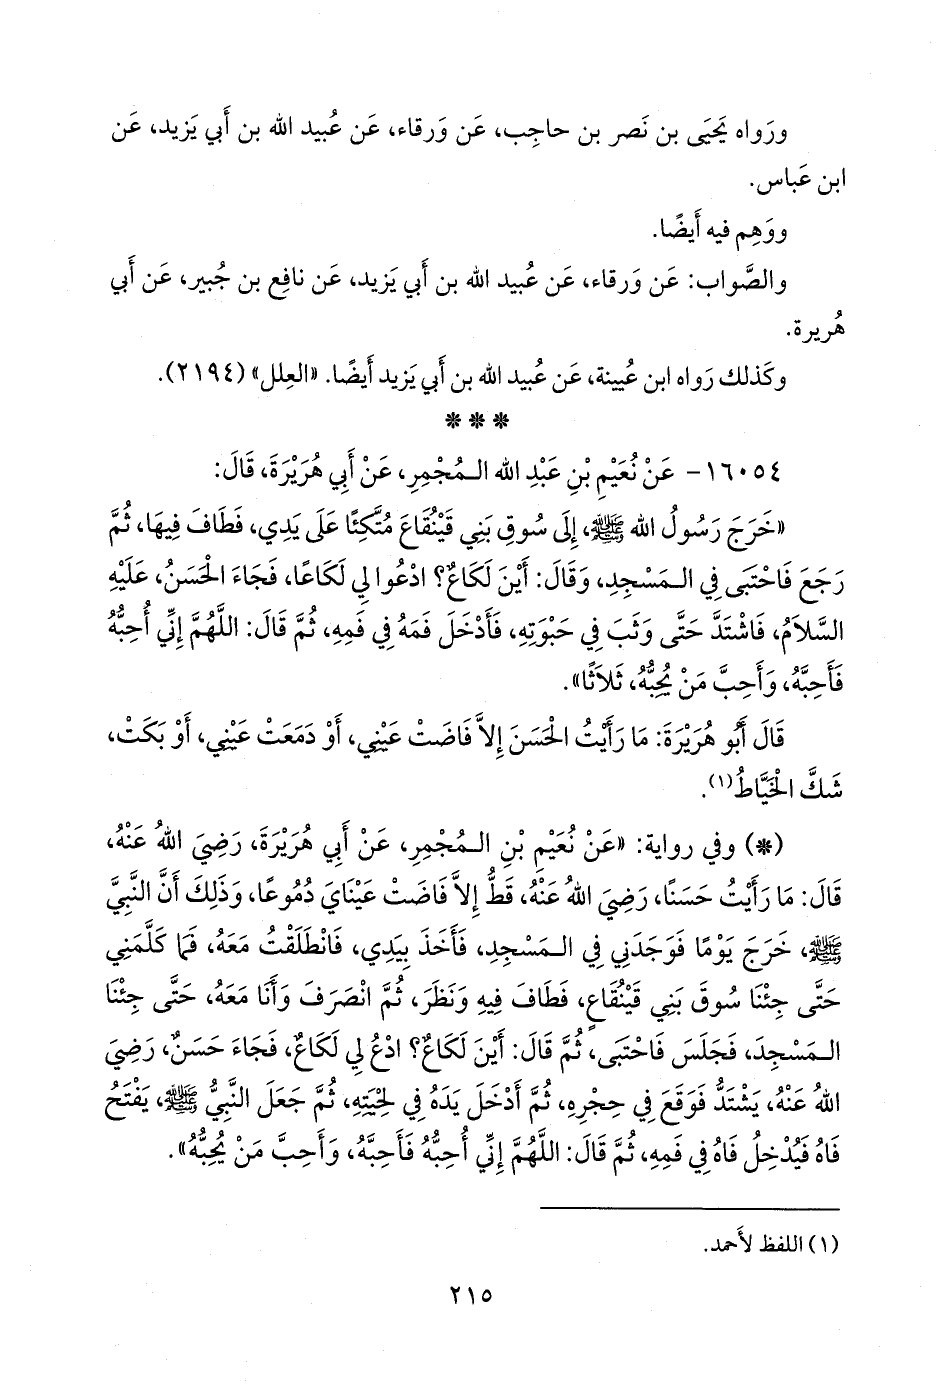 ورَواه يَحيَى بن نَصر بن حاجِب، عَن وَرقاء، عَن عُبيد الله بن أَبي يَزيد، عَن
ابن عَباس.
ووَهِم فيه أَيضًا.
والصَّواب: عَن وَرقاء، عَن عُبيد الله بن أَبي يَزيد، عَن نافِع بن جُبير، عَن أَبي
هُريرة.
وكَذلك رَواه ابن عُيينة، عَن عُبيد الله بن أَبي يَزيد أَيضًا. «العِلل» (٢١٩٤).
* * *
١٦٠٥٤- عَنْ نُعَيْمِ بْنِ عَبْدِ الله الـمُجْمِرِ، عَنْ أَبِي هُرَيْرَةَ، قَالَ:
«خَرَجَ رَسُولُ الله ﷺ، إِلَى سُوقِ بَنِي قَيْنُقَاعَ مُتَّكِئًا عَلَى يَدِي، فَطَافَ فِيهَا، ثُمَّ
رَجَعَ فَاحْتَبَى فِي الـمَسْجِدِ، وَقَالَ: أَيْنَ لَكَاعٌ؟ ادْعُوا لِي لَكَاعًا، فَجَاءَ الْحَسَنُ، عَلَيْهِ
السَّلاَمُ، فَاشْتَدَّ حَتَّى وَثَبَ فِي حَبْوَتِهِ، فَأَدْخَلَ فَمَهُ فِي فَمِهِ، ثُمَّ قَالَ: اللَّهُمَّ إِنِّي أُحِبُّهُ
فَأَحِبَّهُ، وَأَحِبَّ مَنْ يُحِبُّهُ، ثَلاَثًا».
قَالَ أَبُو هُرَيْرَةَ: مَا رَأَيْتُ الْحَسَنَ إِلاَّ فَاضَتْ عَيْنِي، أَوْ دَمَعَتْ عَيْنِي، أَوْ بَكَتْ،
شَكَّ الْخَيَّاطُ(١).
(*) وفي رواية: «عَنْ نُعَيْمِ بْنِ الـمُجْمِرِ، عَنْ أَبِي هُرَيْرَةَ، رَضِيَ اللهُ عَنْهُ،
قَالَ: مَا رَأَيْتُ حَسَنًا، رَضِيَ اللهُ عَنْهُ، قَطُّ إِلاَّ فَاضَتْ عَيْنَايَ دُمُوعًا، وَذَلِكَ أَنَّ النَّبِيَّ
ﷺ، خَرَجَ يَوْمًا فَوَجَدَنِي فِي الـمَسْجِدِ، فَأَخَذَ بِيَدِي، فَانْطَلَقْتُ مَعَهُ، فَمَا كَلَّمَنِي
حَتَّى جِئْنَا سُوقَ بَنِي قَيْنُقَاعٍ، فَطَافَ فِيهِ وَنَظَرَ، ثُمَّ انْصَرَفَ وَأَنَا مَعَهُ، حَتَّى جِئْنَا
الـمَسْجِدَ، فَجَلَسَ فَاحْتَبَى، ثُمَّ قَالَ: أَيْنَ لَكَاعٌ؟ ادْعُ لِي لَكَاعٌ، فَجَاءَ حَسَنٌ، رَضِيَ
اللهُ عَنْهُ، يَشْتَدُّ فَوَقَعَ فِي حِجْرِهِ، ثُمَّ أَدْخَلَ يَدَهُ فِي لِحْيَتِهِ، ثُمَّ جَعَلَ النَّبِيُّ ﷺ، يَفْتَحُ
فَاهُ فَيُدْخِلُ فَاهُ فِي فَمِهِ، ثُمَّ قَالَ: اللَّهُمَّ إِنِّي أُحِبُّهُ فَأَحِبَّهُ، وَأَحِبَّ مَنْ يُحِبُّهُ».
(١) اللفظ لأَحمد.
٢١٥